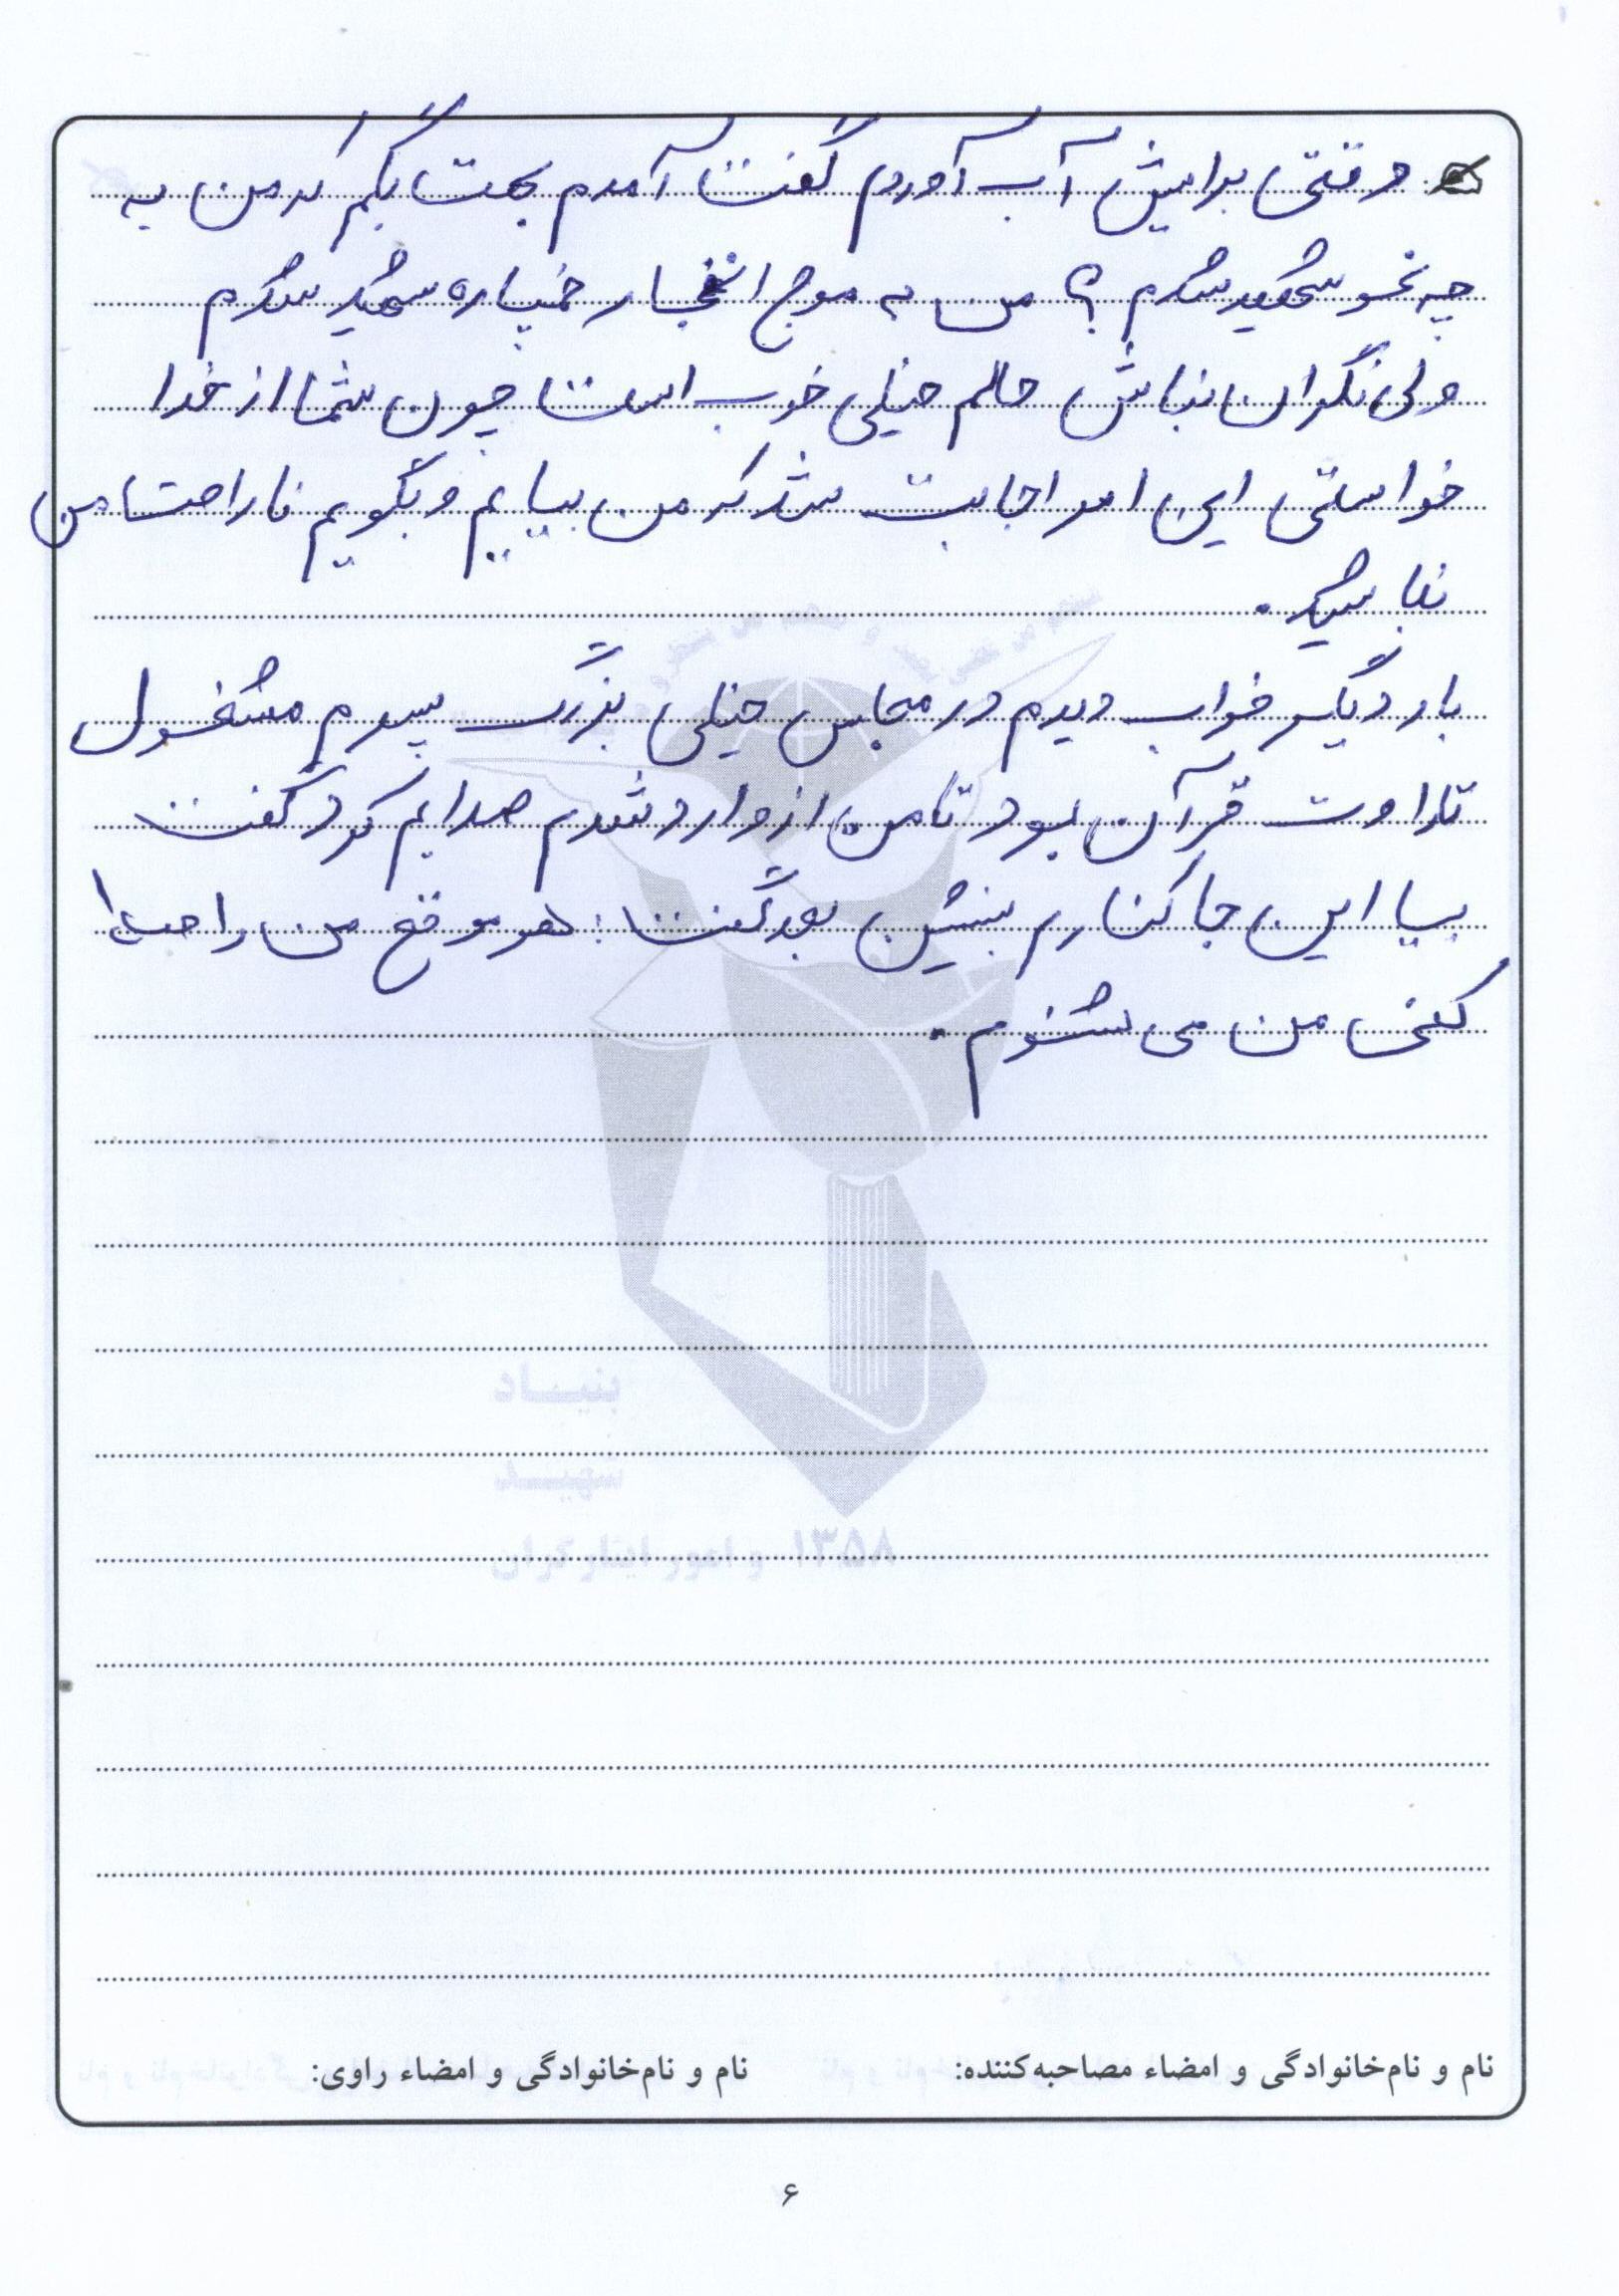 وقتی برایش آب آوردم گفت آمدم بهت بگم که من به
چه نحو شهید شدم؟ من به موج انفجار خمپاره شهید شدم
ولی نگران نباش حالم خیلی خوب است چون شما از خدا
خواستی این امر اجابت شد که من بیایم و بگویم ناراحت من
نباشید.
بار دیگر خواب دیدم در مجلس خیلی بزرگ پسرم مشغول
تلاوت قرآن بود تا من از وارد شدم صدایم کرد گفت
بیا این جا کنارم بنشین بعد گفت: هر موقع من را صدا
کنی من می شنوم.
بنیاد
شهید
۱۳۵۸ و امور ایثارگران
نام و نام‌خانوادگی و امضاء مصاحبه‌کننده: نام و نام‌خانوادگی و امضاء راوی:
۶